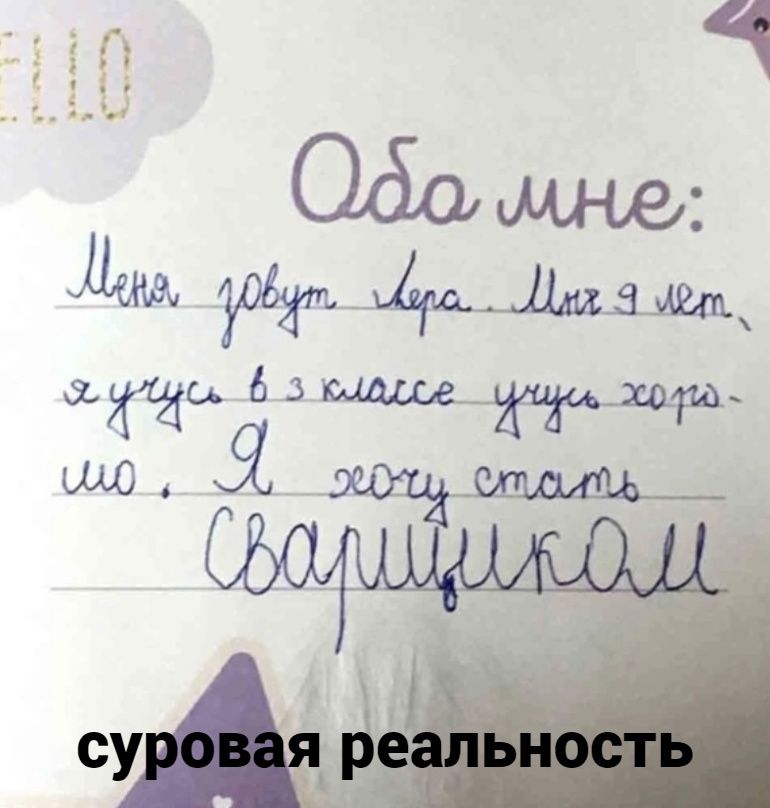 ELLO
Обо мне:
Меня зовут Лера. Мне 9 лет,
я учусь в 3 классе учусь хоро-
шо. Я хочу стать
Сварщиком
суровая реальность